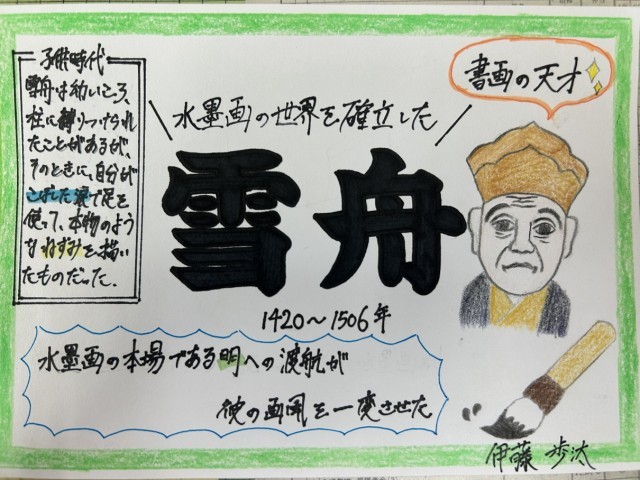 子供時代
雪舟は幼いころ、
柱に縛りつけられ
たことがあるが、
そのときに、自分が
こぼした涙で足を
使って、本物のよう
なねずみを描い
たものだった。
書画の天才
水墨画の世界を確立した
雪舟
1420～1506年
水墨画の本場である明への渡航が
彼の画風を一変させた
伊藤 歩汰